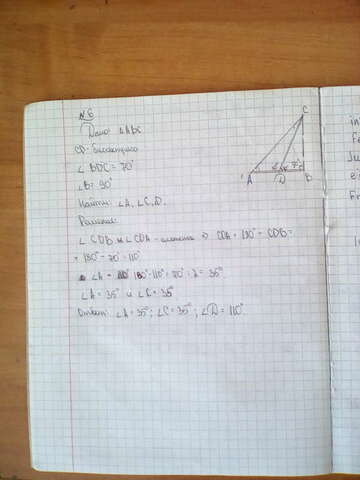 №6
Дано: △ABC
CD - биссектриса
∠ BDC = 70°
∠B = 90°
Найти: ∠A, ∠C, D.
Решение:
∠ CDB и ∠CDA - смежные ⇒ CDA = 180° - CDB =
= 180° - 70° = 110°
∠A = 180° - 110° = 70° : 2 = 35°
∠A = 35° и ∠C = 35°
Ответ: ∠A = 35°; ∠C = 35°; ∠D = 110°
C
A
D
B
70°